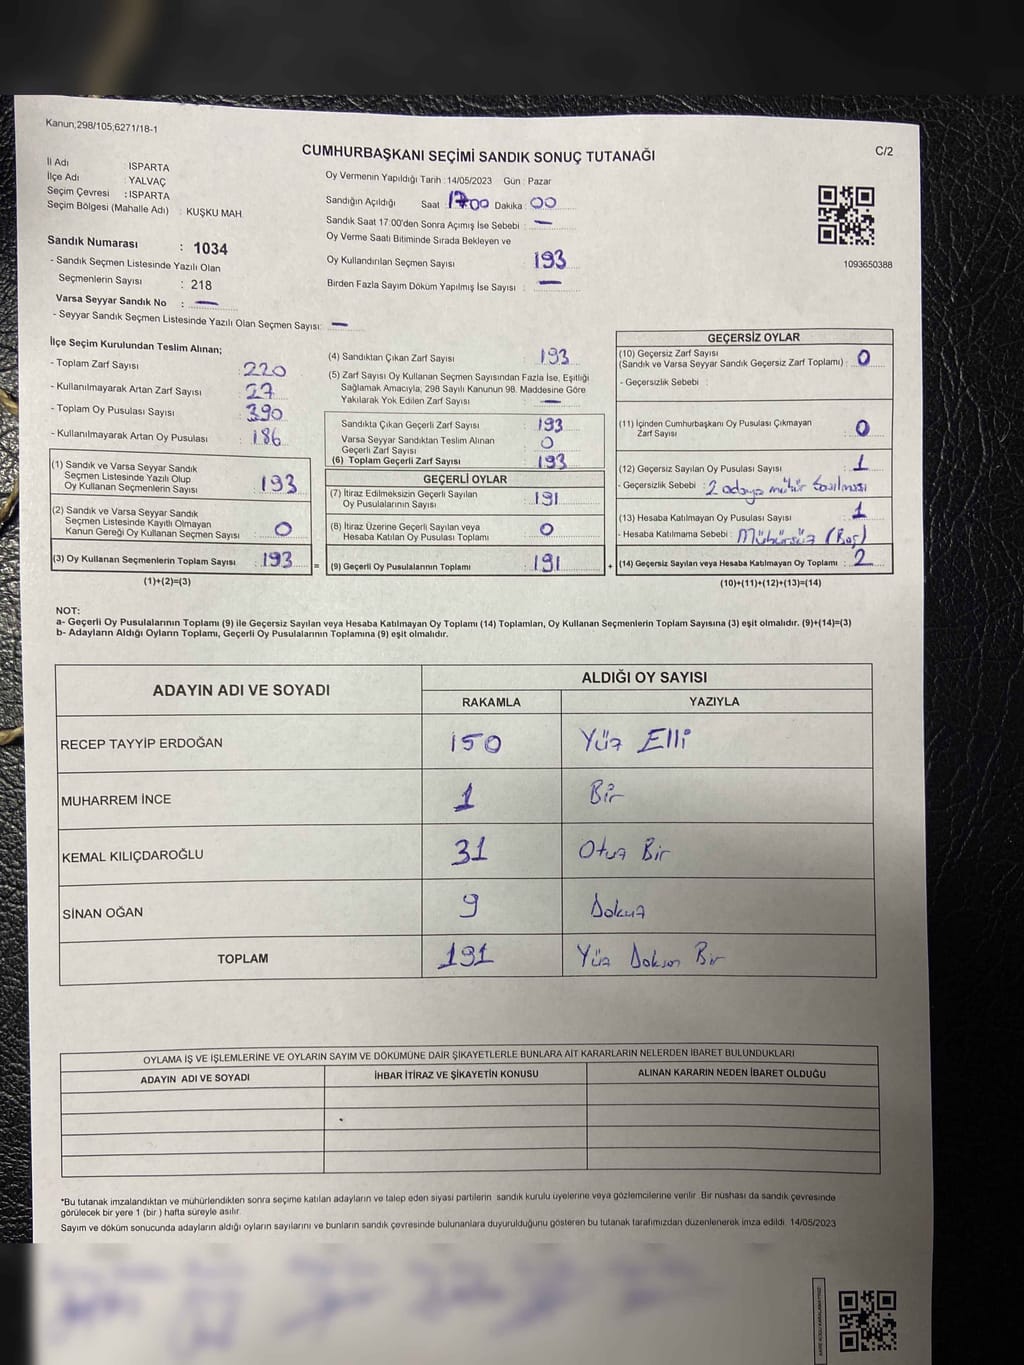 Kanun;298/105;6271/18-1
C/2
CUMHURBAŞKANI SEÇİMİ SANDIK SONUÇ TUTANAĞI
İl Adı : ISPARTA
İlçe Adı : YALVAÇ
Seçim Çevresi : ISPARTA
Seçim Bölgesi (Mahalle Adı) : KUŞKU MAH.
Sandık Numarası : 1034
- Sandık Seçmen Listesinde Yazılı Olan
Seçmenlerin Sayısı : 218
Varsa Seyyar Sandık No : —
- Seyyar Sandık Seçmen Listesinde Yazılı Olan Seçmen Sayısı: —
Oy Vermenin Yapıldığı Tarih :14/05/2023 Gün : Pazar
Sandığın Açıldığı Saat : 1700 Dakika : 00
Sandık Saat 17:00'den Sonra Açımış İse Sebebi : —
Oy Verme Saati Bitiminde Sırada Bekleyen ve
Oy Kullandırılan Seçmen Sayısı : 193
Birden Fazla Sayım Döküm Yapılmış İse Sayısı : —
1093650388
İlçe Seçim Kurulundan Teslim Alınan;
- Toplam Zarf Sayısı : 220
- Kullanılmayarak Artan Zarf Sayısı : 27
- Toplam Oy Pusulası Sayısı : 390
- Kullanılmayarak Artan Oy Pusulası : 186
(1) Sandık ve Varsa Seyyar Sandık
Seçmen Listesinde Yazılı Olup
Oy Kullanan Seçmenlerin Sayısı : 193
(2) Sandık ve Varsa Seyyar Sandık
Seçmen Listesinde Kayıtlı Olmayan
Kanun Gereği Oy Kullanan Seçmen Sayısı : 0
(3) Oy Kullanan Seçmenlerin Toplam Sayısı : 193
(1)+(2)=(3)
=
(4) Sandıktan Çıkan Zarf Sayısı : 193
(5) Zarf Sayısı Oy Kullanan Seçmen Sayısından Fazla İse, Eşitliği
Sağlamak Amacıyla, 298 Sayılı Kanunun 98. Maddesine Göre
Yakılarak Yok Edilen Zarf Sayısı : —
Sandıkta Çıkan Geçerli Zarf Sayısı : 193
Varsa Seyyar Sandıktan Teslim Alınan
Geçerli Zarf Sayısı : 0
(6) Toplam Geçerli Zarf Sayısı : 193
GEÇERLİ OYLAR
(7) İtiraz Edilmeksizin Geçerli Sayılan
Oy Pusulalarının Sayısı : 191
(8) İtiraz Üzerine Geçerli Sayılan veya
Hesaba Katılan Oy Pusulası Toplamı : 0
(9) Geçerli Oy Pusulalarının Toplamı : 191
+
GEÇERSİZ OYLAR
(10) Geçersiz Zarf Sayısı
(Sandık ve Varsa Seyyar Sandık Geçersiz Zarf Toplamı) : 0
- Geçersizlik Sebebi :
(11) İçinden Cumhurbaşkanı Oy Pusulası Çıkmayan
Zarf Sayısı : 0
(12) Geçersiz Sayılan Oy Pusulası Sayısı : 1
- Geçersizlik Sebebi : 2 adaya mühür basılması
(13) Hesaba Katılmayan Oy Pusulası Sayısı : 1
- Hesaba Katılmama Sebebi : Mühürsüz (Boş)
(14) Geçersiz Sayılan veya Hesaba Katılmayan Oy Toplamı : 2
(10)+(11)+(12)+(13)=(14)
NOT:
a- Geçerli Oy Pusulalarının Toplamı (9) ile Geçersiz Sayılan veya Hesaba Katılmayan Oy Toplamı (14) Toplamları, Oy Kullanan Seçmenlerin Toplam Sayısına (3) eşit olmalıdır. (9)+(14)=(3)
b- Adayların Aldığı Oyların Toplamı, Geçerli Oy Pusulalarının Toplamına (9) eşit olmalıdır.
ADAYIN ADI VE SOYADI
ALDIĞI OY SAYISI
RAKAMLA YAZIYLA
RECEP TAYYİP ERDOĞAN 150 Yüz Elli
MUHARREM İNCE 1 Bir
KEMAL KILIÇDAROĞLU 31 Otuz Bir
SİNAN OĞAN 9 Dokuz
TOPLAM 191 Yüz Doksan Bir
OYLAMA İŞ VE İŞLEMLERİNE VE OYLARIN SAYIM VE DÖKÜMÜNE DAİR ŞİKAYETLERLE BUNLARA AİT KARARLARIN NELERDEN İBARET BULUNDUKLARI
ADAYIN ADI VE SOYADI İHBAR İTİRAZ VE ŞİKAYETİN KONUSU ALINAN KARARIN NEDEN İBARET OLDUĞU
*Bu tutanak imzalandıktan ve mühürlendikten sonra seçime katılan adayların ve talep eden siyasi partilerin sandık kurulu üyelerine veya gözlemcilerine verilir. Bir nüshası da sandık çevresinde
görülecek bir yere 1 (bir ) hafta süreyle asılır.
Sayım ve döküm sonucunda adayların aldığı oyların sayılarını ve bunların sandık çevresinde bulunanlara duyurulduğunu gösteren bu tutanak tarafımızdan düzenlenerek imza edildi. 14/05/2023